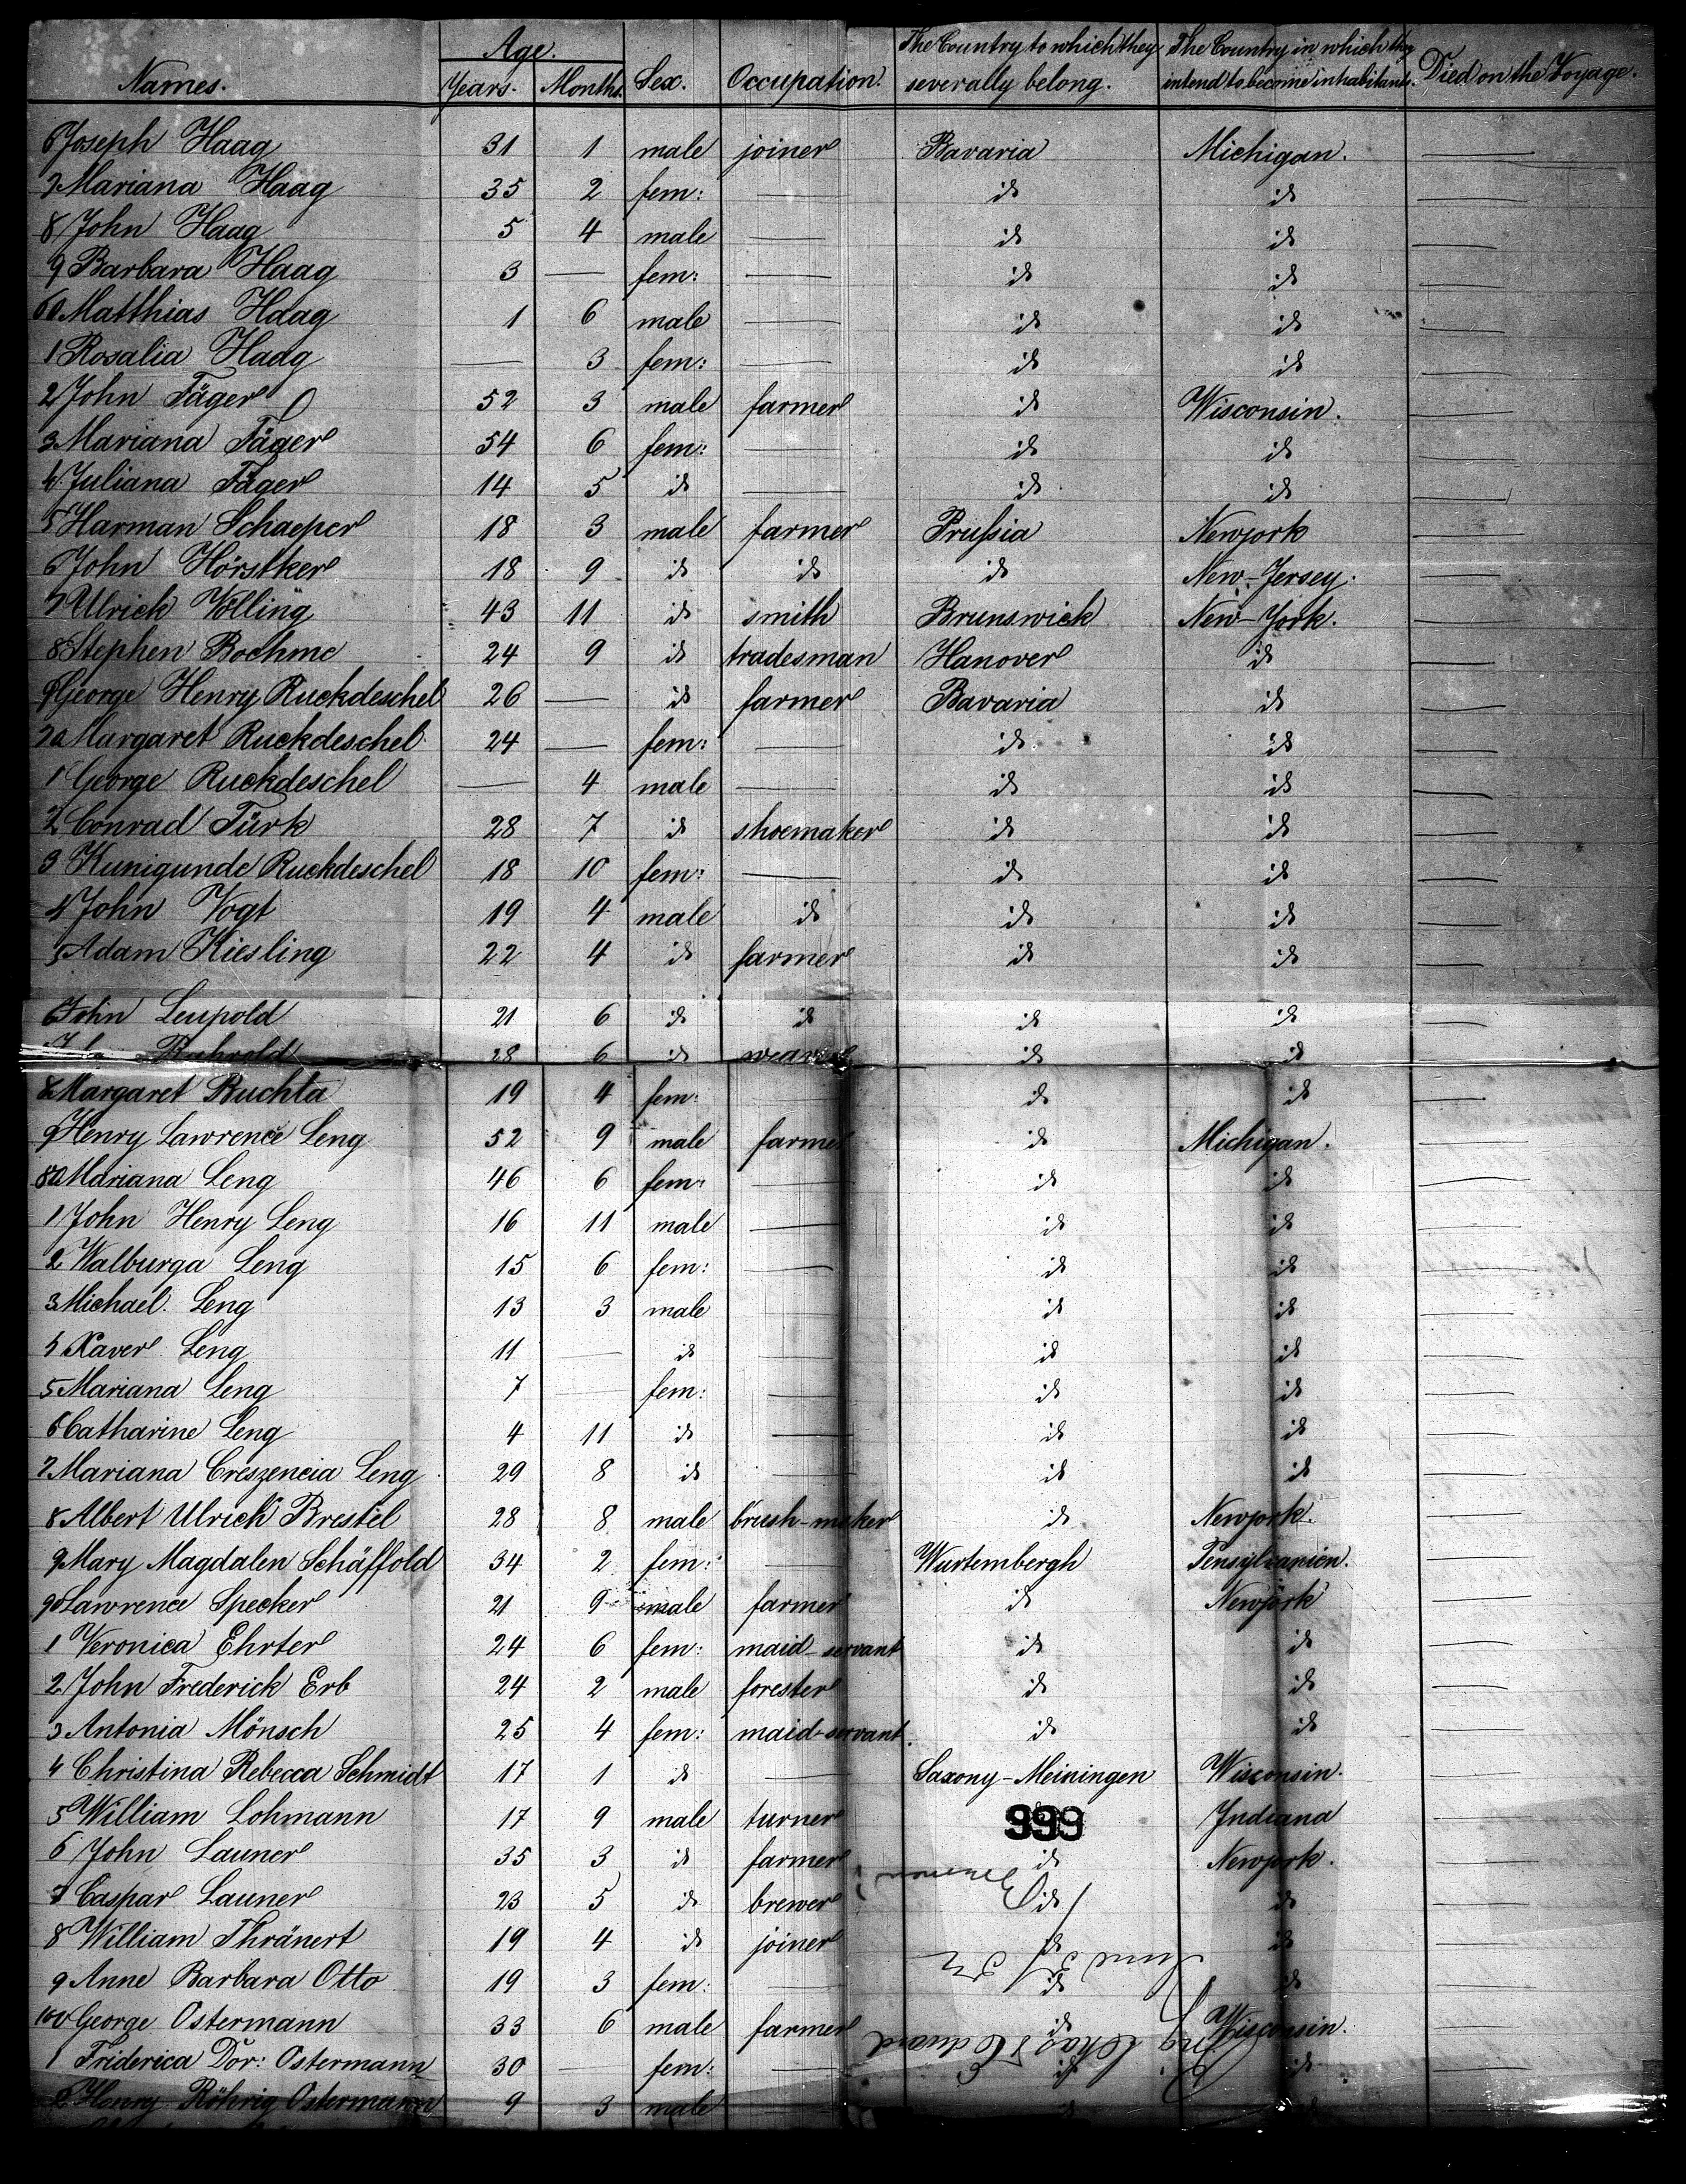 Names. Age. Years. Months. Sex. Occupation. The Country to which they severally belong. The Country in which they intend to become inhabitants. Died on the Voyage.
6 Joseph Haag 31 1 male joiner Bavaria Michigan. —
7 Mariana Haag 35 2 fem: — id id —
8 John Haag 5 4 male — id id —
9 Barbara Haag 3 — fem: — id id —
60 Matthias Haag 1 6 male — id id —
1 Rosalia Haag — 3 fem: — id id —
2 John Jäger 52 3 male farmer id Wisconsin. —
3 Mariana Jäger 54 6 fem: — id id —
4 Juliana Jäger 14 5 id — id id —
5 Harman Schaeper 18 3 male farmer Prußia Newyork —
6 John Hörstker 18 9 id id id New-Jersey. —
7 Ulrich Völling 43 11 id smith Brunswick New-York. —
8 Stephen Boehme 24 9 id tradesman Hanover id —
9 George Henry Ruckdeschel 26 — id farmer Bavaria id —
70 Margaret Ruckdeschel 24 — fem: — id id —
1 George Ruckdeschel — 4 male — id id —
2 Conrad Türk 28 7 id shoemaker id id —
3 Kunigunde Ruckdeschel 18 10 fem: — id id —
4 John Vogt 19 4 male id id id —
5 Adam Kiesling 22 4 id farmer id id —
6 John Leupold 21 6 id id id id —
28 6 id weaver id id
8 Margaret Ruchta 19 4 fem: id id —
9 Henry Lawrence Leng 52 9 male farmer id Michigan. —
80 Mariana Leng 46 6 fem: — id id —
1 John Henry Leng 16 11 male — id id —
2 Walburga Leng 15 6 fem: — id id —
3 Michael Leng 13 3 male id id —
4 Xaver Leng 11 — id — id id —
5 Mariana Leng 7 — fem: — id id —
6 Catharine Leng 4 11 id — id id —
7 Mariana Creszencia Leng 29 8 id — id id —
8 Albert Ulrich Brestel 28 8 male brush-maker id Newyork. —
9 Mary Magdalen Schäffold 34 2 fem: — Wurtembergh Pensylvanien. —
90 Lawrence Specker 21 9 male farmer id Newyork —
1 Veronica Ehrter 24 6 fem: maid-servant id id —
2 John Frederick Erb 24 2 male forester id id —
3 Antonia Mönsch 25 4 fem: maid-servant. id id —
4 Christina Rebecca Schmidt 17 1 id — Saxony-Meiningen Wisconsin. —
5 William Lohmann 17 9 male turner 999 Indiana —
6 John Launer 35 3 id farmer id Newyork. —
7 Caspar Launer 23 5 id brewer id id —
8 William Thränert 19 4 id joiner id id —
9 Anne Barbara Otto 19 3 fem: — id id —
100 George Ostermann 33 6 male farmer id Wisconsin. —
1 Friderica Dor: Ostermann 30 — fem: — id id —
2 Henry Röhrig Ostermann 9 3 male — id id —